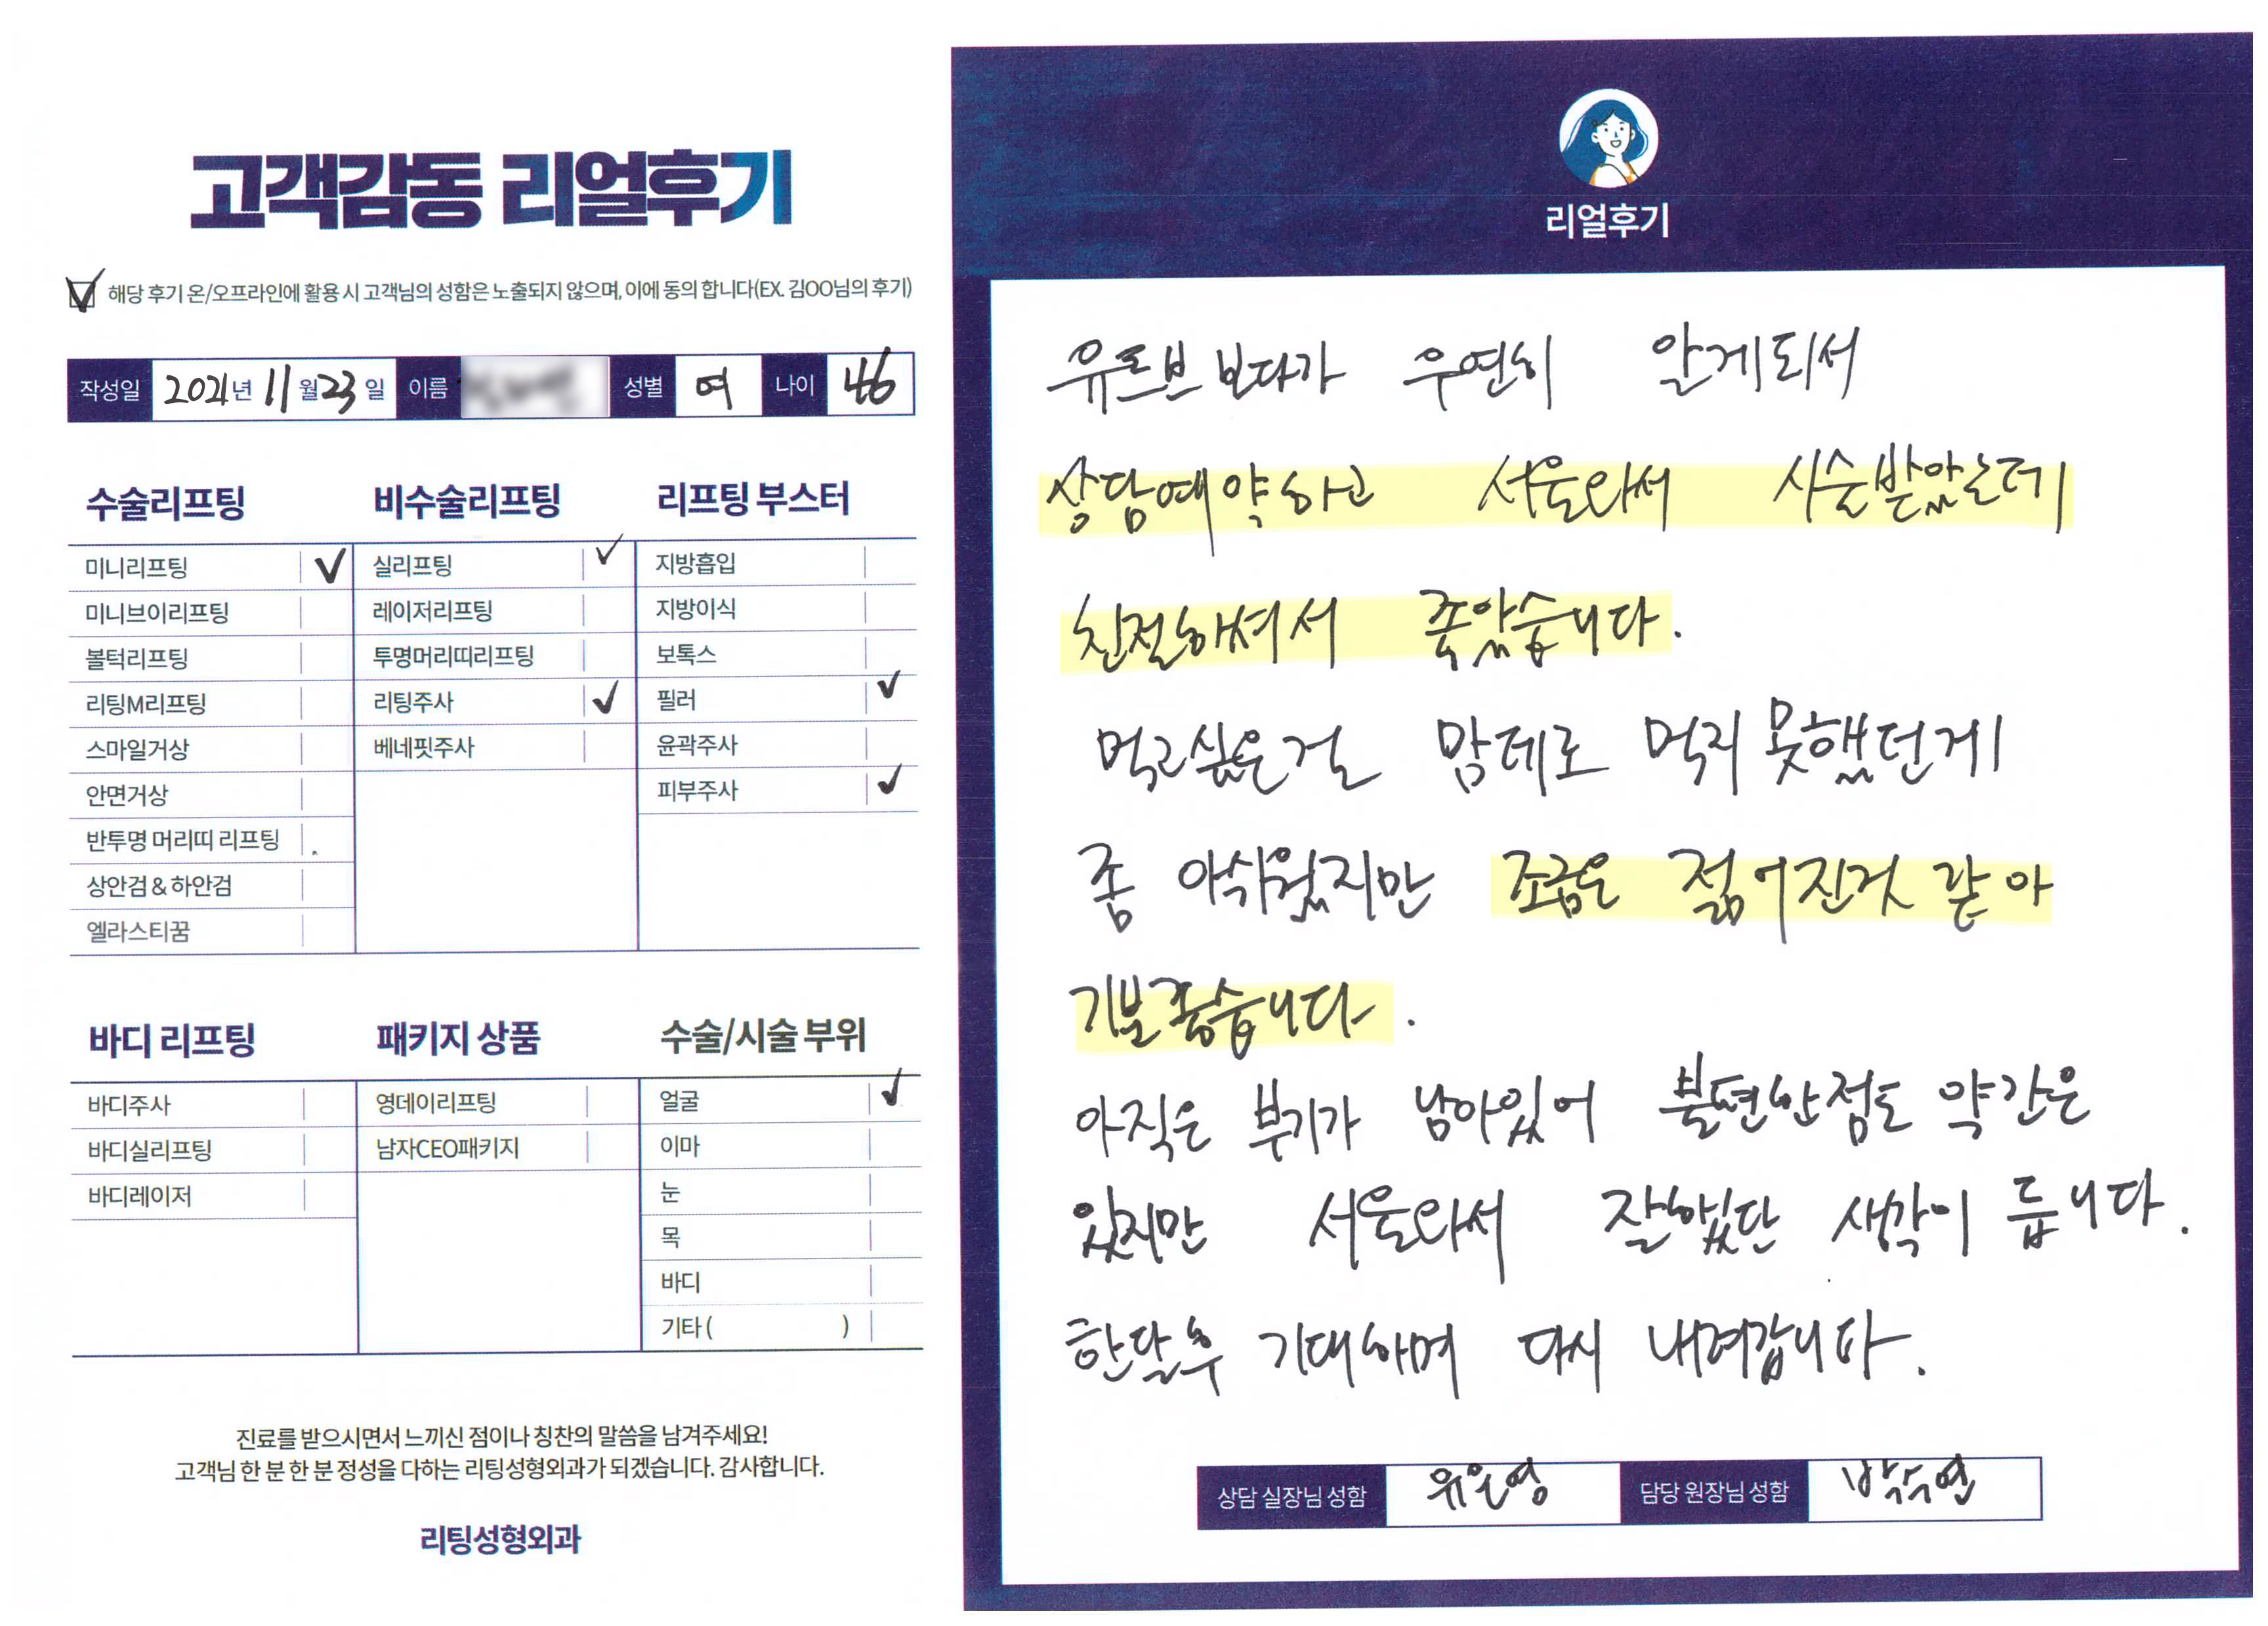 고객감동 리얼후기
해당 후기 온/오프라인에 활용 시 고객님의 성함은 노출되지 않으며, 이에 동의 합니다(EX. 김OO님의 후기)
작성일 2021년 11월 23일 이름 성별 여 나이 46
수술리프팅
미니리프팅
미니브이리프팅
볼턱리프팅
리팅M리프팅
스마일거상
안면거상
반투명 머리띠 리프팅
상안검 & 하안검
엘라스티꿈
비수술리프팅
실리프팅
레이저리프팅
투명머리띠리프팅
리팅주사
베네핏주사
리프팅 부스터
지방흡입
지방이식
보톡스
필러
윤곽주사
피부주사
바디 리프팅
바디주사
바디실리프팅
바디레이저
패키지 상품
영데이리프팅
남자CEO패키지
수술/시술 부위
얼굴
이마
눈
목
바디
기타 ( )
진료를 받으시면서 느끼신 점이나 칭찬의 말씀을 남겨주세요!
고객님 한 분 한 분 정성을 다하는 리팅성형외과가 되겠습니다. 감사합니다.
리팅성형외과
리얼후기
유튜브 보다가 우연히 알게되서
상담예약하고 서울와서 시술받았는데
친절하셔서 좋았습니다.
먹고싶은걸 맘데로 먹지 못했던게
좀 아쉬웠지만 조금은 젊어진것 같아
기분좋습니다.
아직은 부기가 남아있어 불편한점도 약간은
있지만 서울와서 잘했단 생각이 듭니다.
한달후 기대하며 다시 내려갑니다.
상담 실장님 성함 위은영 담당 원장님 성함 박수연